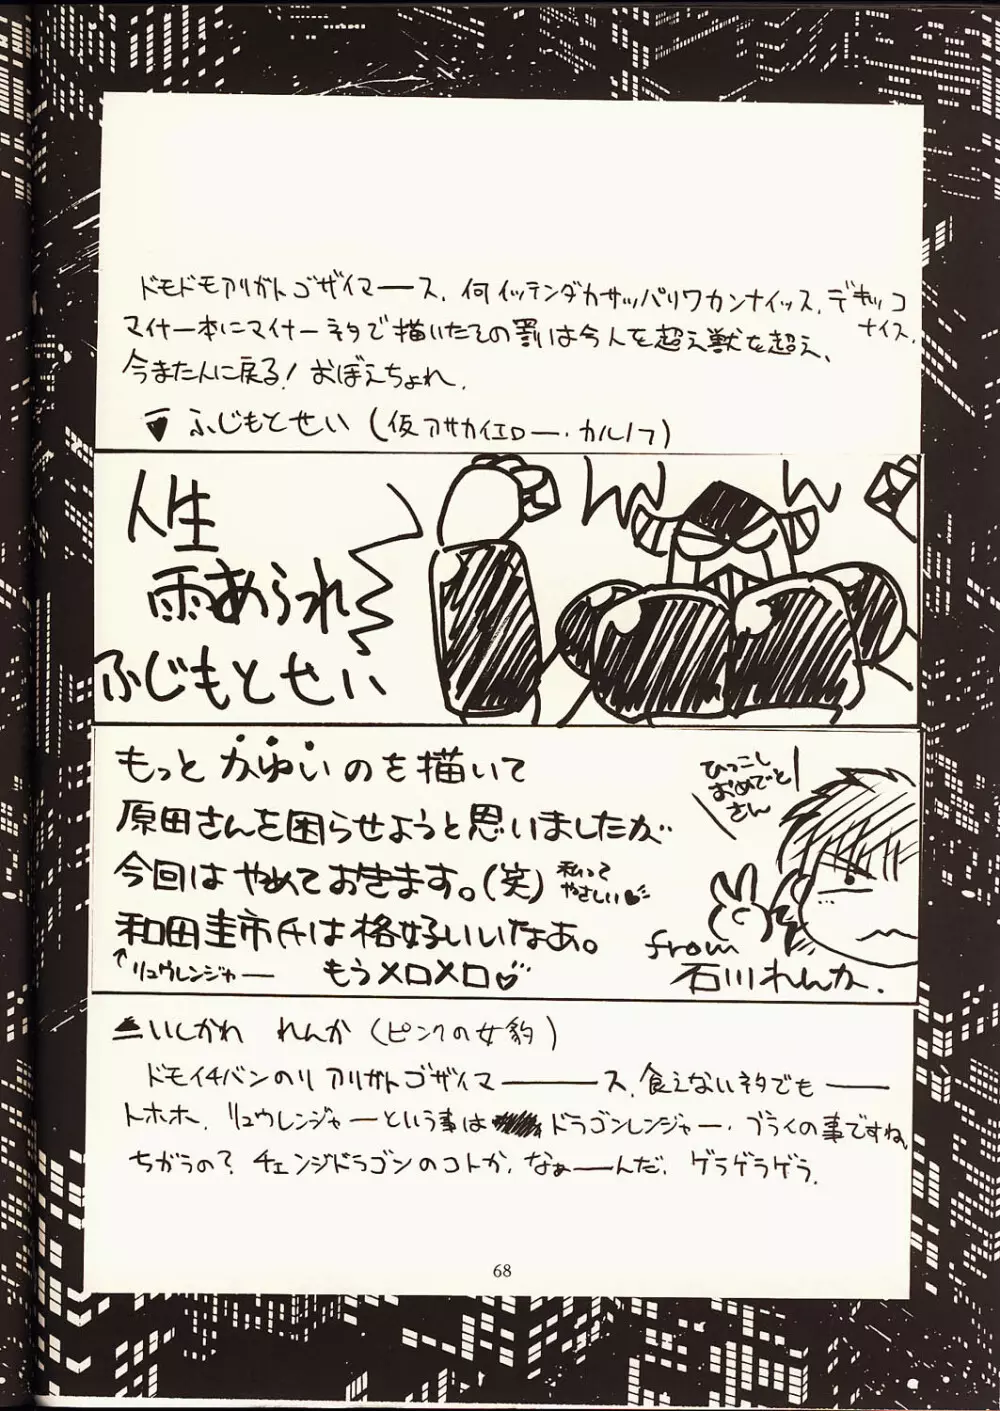 ドモドモアリガトゴザイマース. 何イッテンダカサッパリワカンナイッス.
マイナー本にマイナーネタで描いたその罰は今人を超え獣を超え、
ナイス.
今また人に戻る! おぼえちょれ.
ふじもとせい (仮アサカイエロー・カルノフ)
人生
雨あられ
ふじもとせい
もっとかゆいのを描いて
原田さんを困らせようと思いましたが
今回はやめておきます。(笑) 私って やさしい♥
和田圭市氏は格好いいなあ。
↑リュウレンジャー もうメロメロ♡
ひっこし
おめでと
さん
from
石川れんか.
いしかわ れんか (ピンクの女豹)
ドモイチバンのリ アリガトゴザイマーーース. 食えないネタでもー
トホホ. リュウレンジャーという事は ドラゴンレンジャー・ブライの事ですね.
ちがうの? チェンジドラゴンのコトか. なぁーんだ. ゲラゲラゲラ.
68